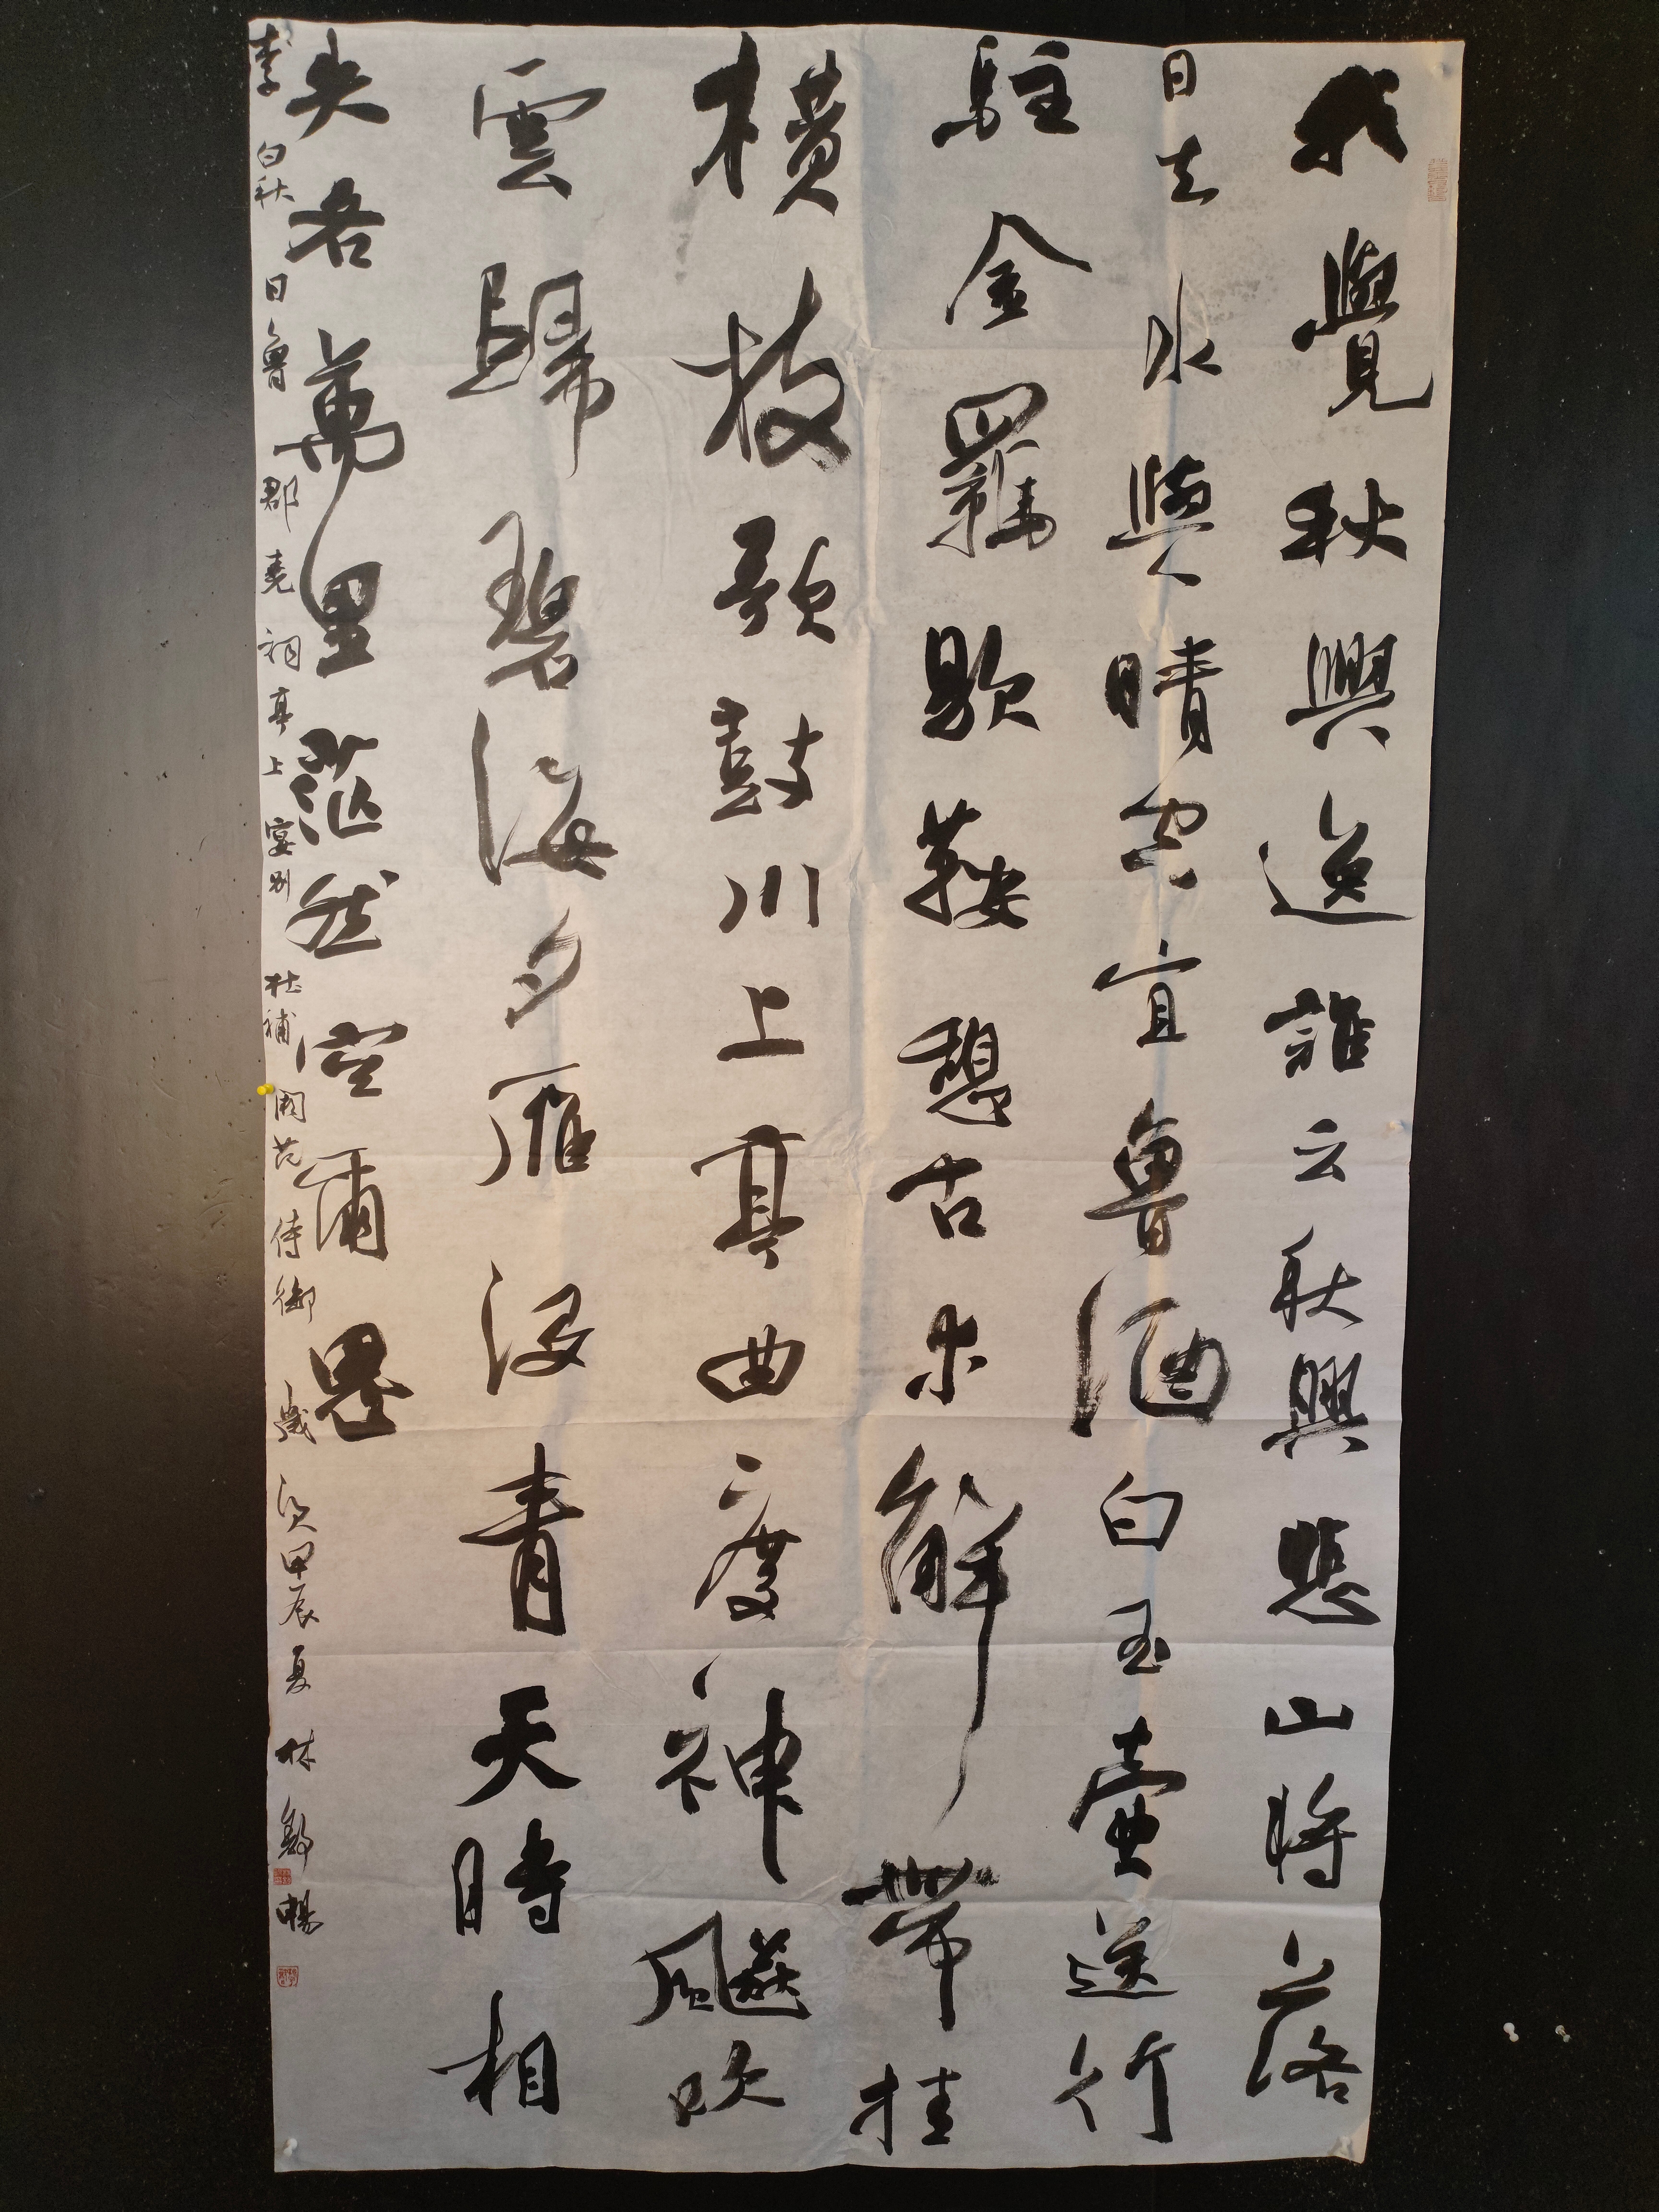 我覺秋興逸誰云秋興悲山將落
日去水與晴空宜魯酒白玉壺送行
駐金羈歇鞍憩古木解帶挂
橫枝歌鼓川上亭曲度神飆吹
雲歸碧海夕雁没青天時相
失各萬里茫然空爾思
李白秋日魯郡堯祠亭上宴别杜補闕范侍御歲次甲辰夏林